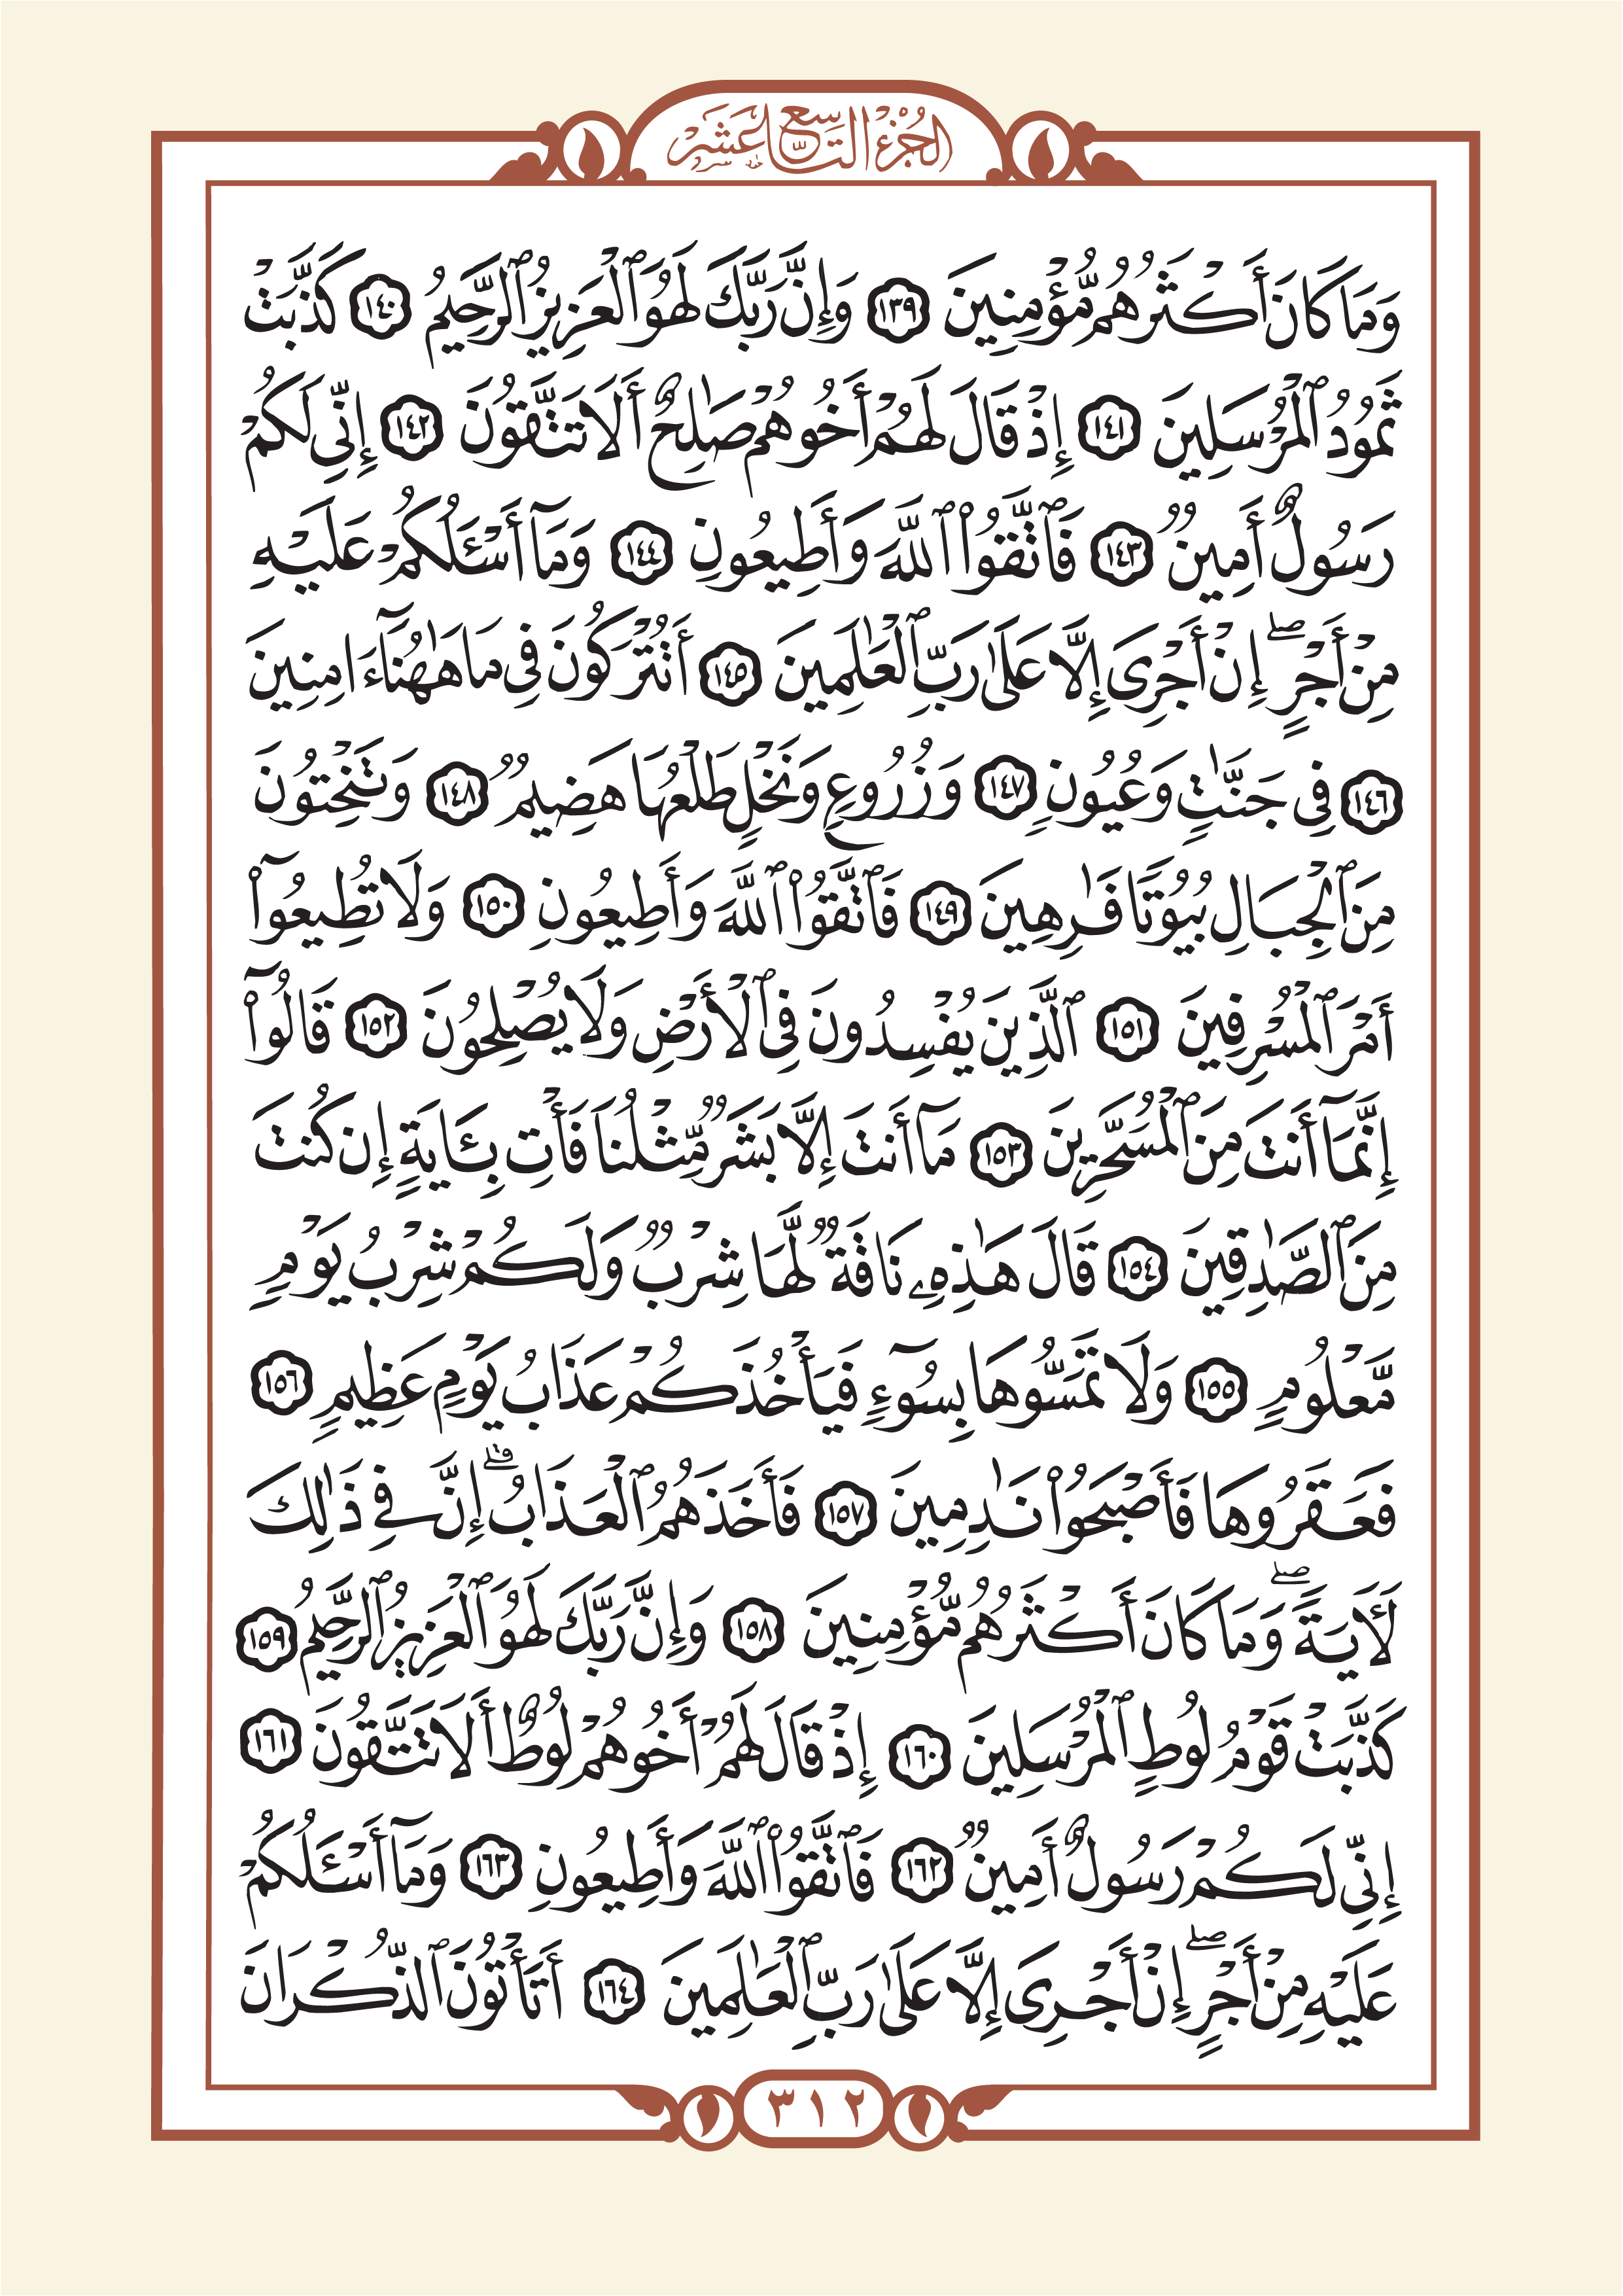 الجزء التاسع عشر
وَمَا كَانَ أَكْثَرُهُم مُّؤْمِنِينَ ١٣٩ وَإِنَّ رَبَّكَ لَهُوَ ٱلْعَزِيزُ ٱلرَّحِيمُ ١٤٠ كَذَّبَتْ
ثَمُودُ ٱلْمُرْسَلِينَ ١٤١ إِذْ قَالَ لَهُمْ أَخُوهُمْ صَٰلِحٌ أَلَا تَتَّقُونَ ١٤٢ إِنِّي لَكُمْ
رَسُولٌ أَمِينٌ ١٤٣ فَٱتَّقُوا۟ ٱللَّهَ وَأَطِيعُونِ ١٤٤ وَمَآ أَسْـَٔلُكُمْ عَلَيْهِ
مِنْ أَجْرٍ ۖ إِنْ أَجْرِىَ إِلَّا عَلَىٰ رَبِّ ٱلْعَٰلَمِينَ ١٤٥ أَتُتْرَكُونَ فِى مَا هَٰهُنَآ ءَامِنِينَ
١٤٦ فِى جَنَّٰتٍ وَعُيُونٍ ١٤٧ وَزُرُوعٍ وَنَخْلٍ طَلْعُهَا هَضِيمٌ ١٤٨ وَتَنْحِتُونَ
مِنَ ٱلْجِبَالِ بُيُوتًا فَٰرِهِينَ ١٤٩ فَٱتَّقُوا۟ ٱللَّهَ وَأَطِيعُونِ ١٥٠ وَلَا تُطِيعُوٓا۟
أَمْرَ ٱلْمُسْرِفِينَ ١٥١ ٱلَّذِينَ يُفْسِدُونَ فِى ٱلْأَرْضِ وَلَا يُصْلِحُونَ ١٥٢ قَالُوٓا۟
إِنَّمَآ أَنتَ مِنَ ٱلْمُسَحَّرِينَ ١٥٣ مَآ أَنتَ إِلَّا بَشَرٌ مِّثْلُنَا فَأْتِ بِـَٔايَةٍ إِن كُنتَ
مِنَ ٱلصَّٰدِقِينَ ١٥٤ قَالَ هَٰذِهِۦ نَاقَةٌ لَّهَا شِرْبٌ وَلَكُمْ شِرْبُ يَوْمٍ
مَّعْلُومٍ ١٥٥ وَلَا تَمَسُّوهَا بِسُوٓءٍ فَيَأْخُذَكُمْ عَذَابُ يَوْمٍ عَظِيمٍ ١٥٦
فَعَقَرُوهَا فَأَصْبَحُوا۟ نَٰدِمِينَ ١٥٧ فَأَخَذَهُمُ ٱلْعَذَابُ ۗ إِنَّ فِي ذَٰلِكَ
لَـَٔايَةً ۖ وَمَا كَانَ أَكْثَرُهُم مُّؤْمِنِينَ ١٥٨ وَإِنَّ رَبَّكَ لَهُوَ ٱلْعَزِيزُ ٱلرَّحِيمُ ١٥٩
كَذَّبَتْ قَوْمُ لُوطٍ ٱلْمُرْسَلِينَ ١٦٠ إِذْ قَالَ لَهُمْ أَخُوهُمْ لُوطٌ أَلَا تَتَّقُونَ ١٦١
إِنِّي لَكُمْ رَسُولٌ أَمِينٌ ١٦٢ فَٱتَّقُوا۟ ٱللَّهَ وَأَطِيعُونِ ١٦٣ وَمَآ أَسْـَٔلُكُمْ
عَلَيْهِ مِنْ أَجْرٍ ۖ إِنْ أَجْرِىَ إِلَّا عَلَىٰ رَبِّ ٱلْعَٰلَمِينَ ١٦٤ أَتَأْتُونَ ٱلذُّكْرَانَ
٣١٢